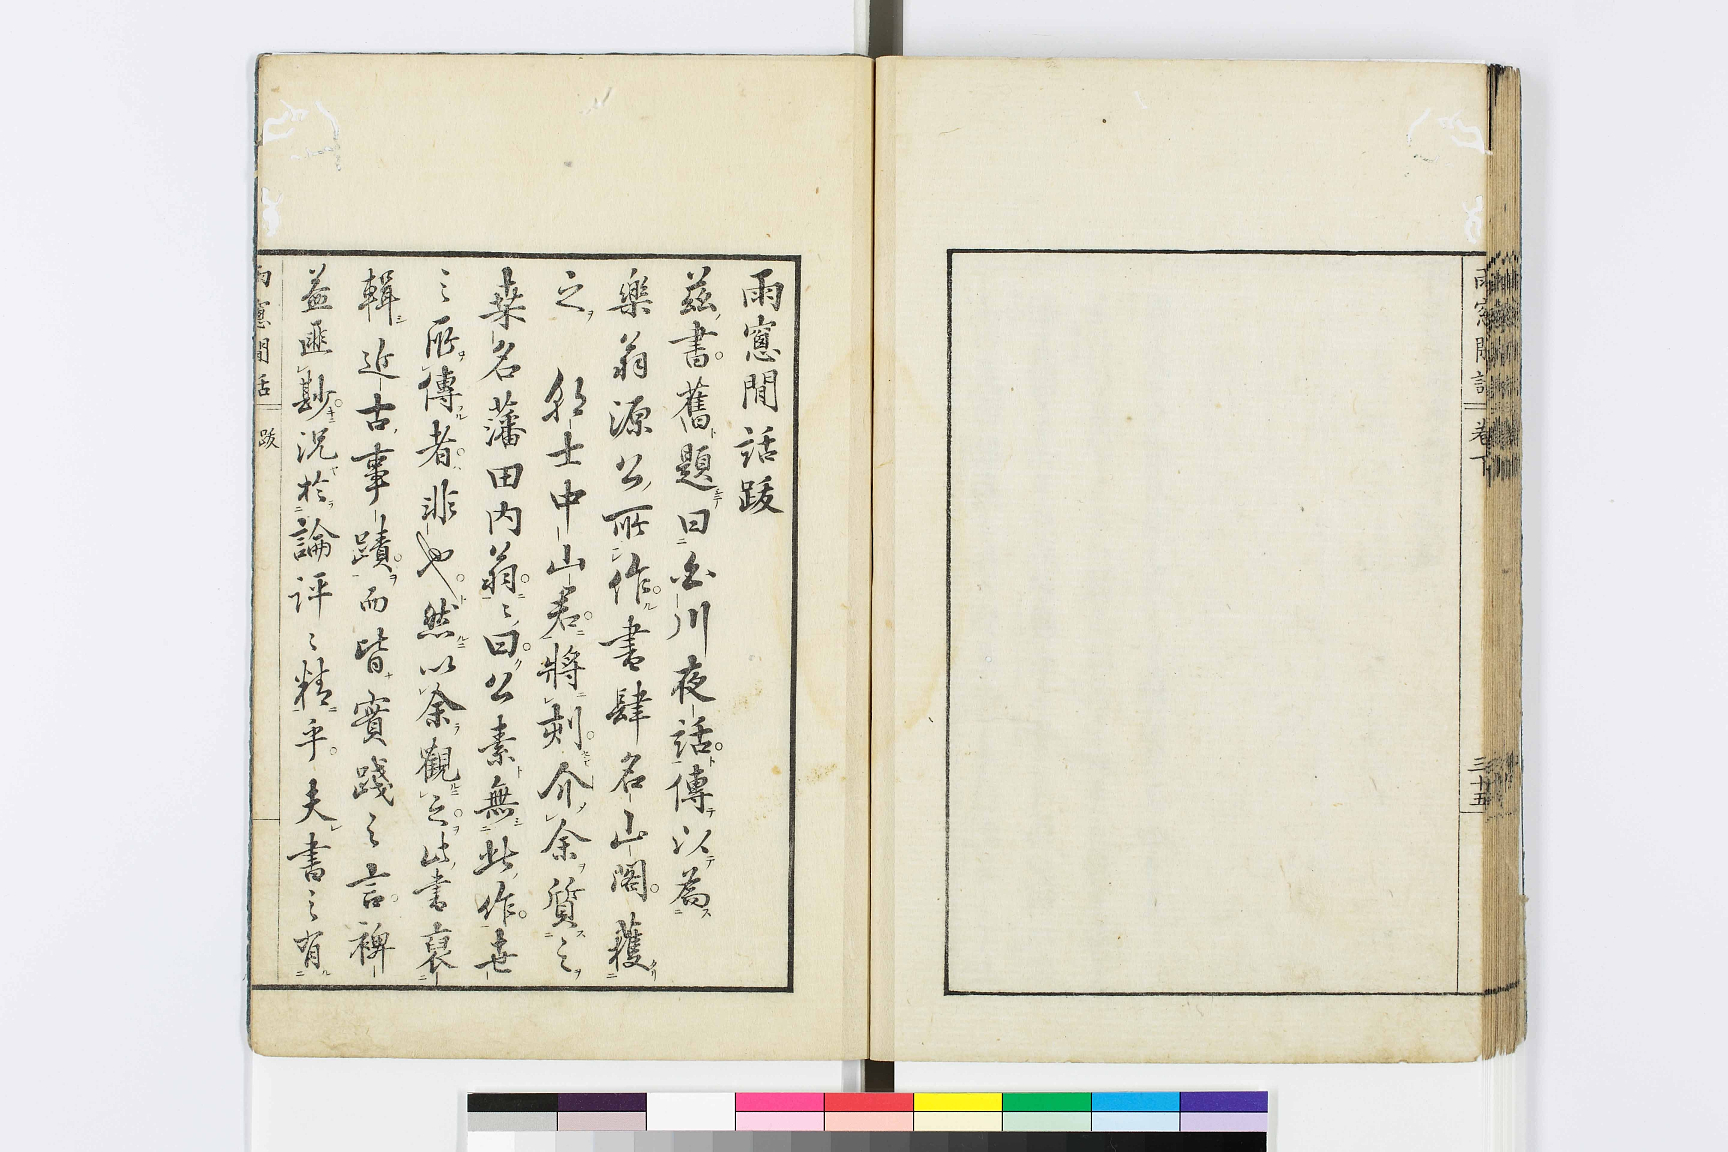 雨窓閒話 巻下 三十五
雨窓閒話跋
茲書舊題曰白川夜話傳以為
樂翁源公所作書肆名山閣獲
之 邦士中山君將刻介余質之
桑名藩田内翁々曰公素無此作世
之所傳者非也然以余觀之此書裒
輯近古事蹟而皆實踐之言裨
益匪尠況於論評之精乎夫書之有
雨窓閒話 跋